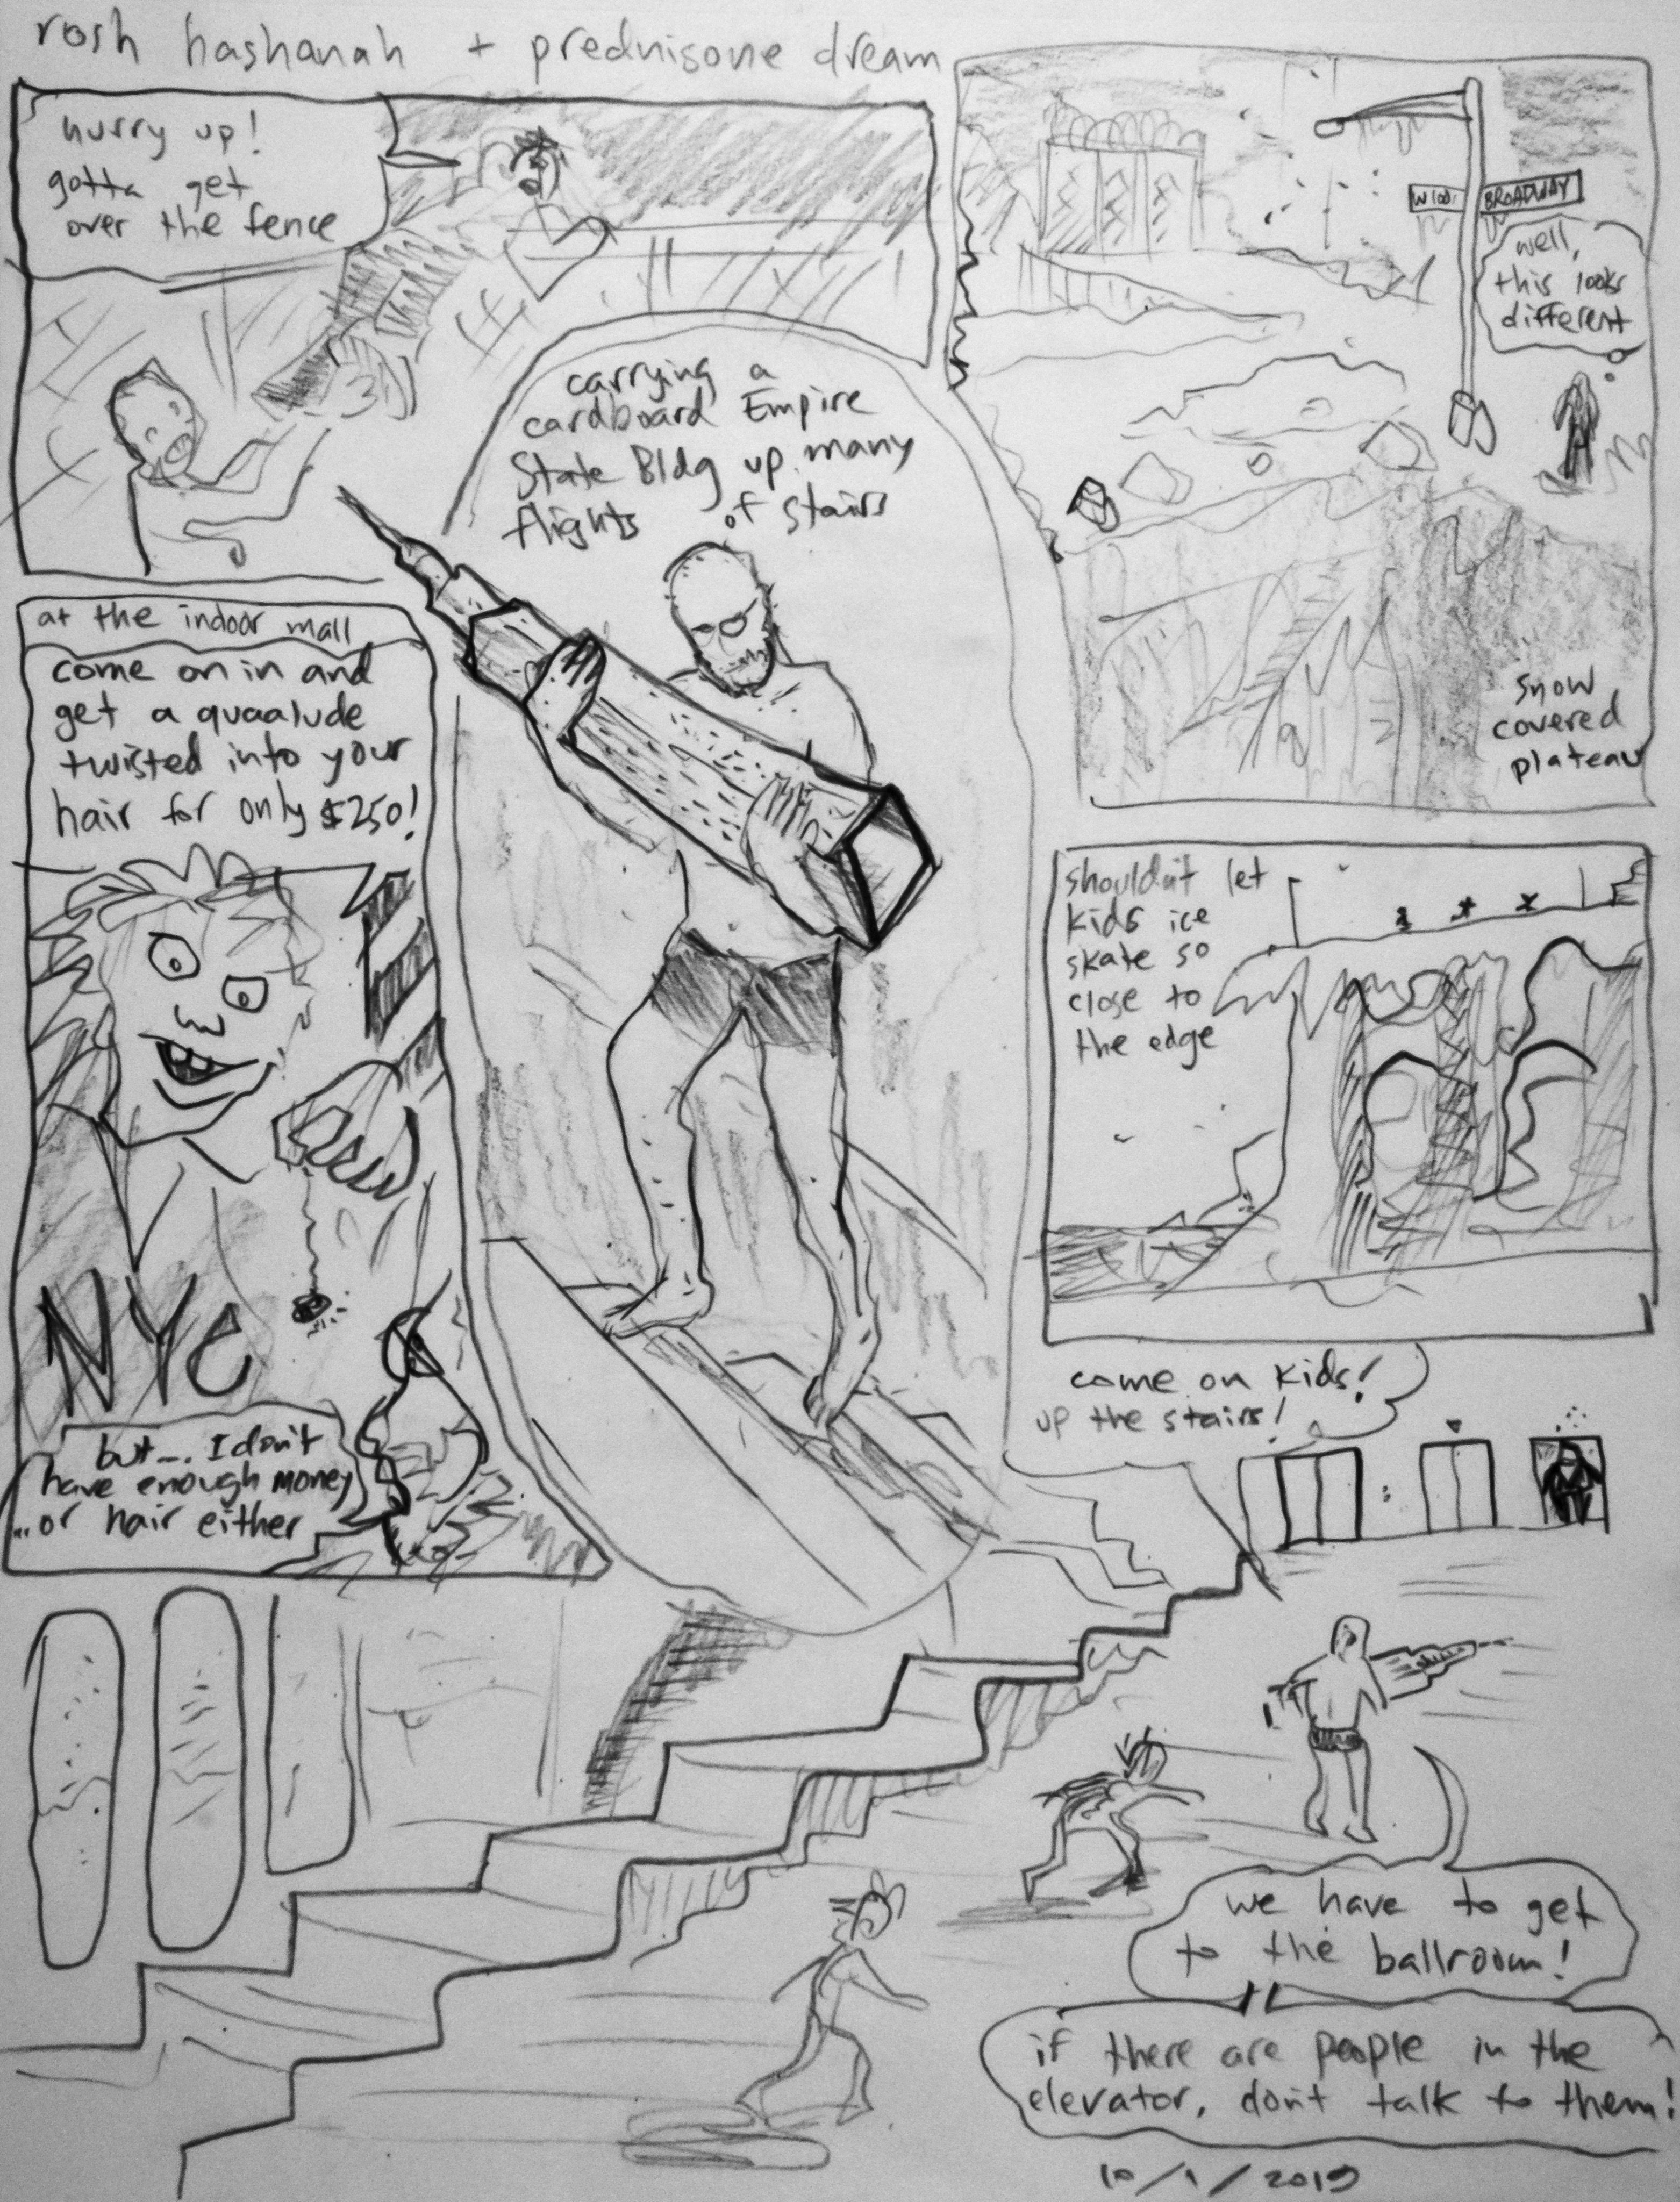 rosh hashanah + prednisone dream
hurry up!
gotta get
over the fence
BROADWAY
well,
this looks
different
snow
covered
plateau
carrying a
cardboard Empire
State Bldg up many
flights of stairs
at the indoor mall
come on in and
get a quaalude
twisted into your
hair for only $250!
NYC
but... I don't
have enough money
...or hair either
shouldn't let
kids ice
skate so
close to
the edge
come on kids!
up the stairs!
we have to get
to the ballroom!
if there are people in the
elevator, don't talk to them!
10/1/2019